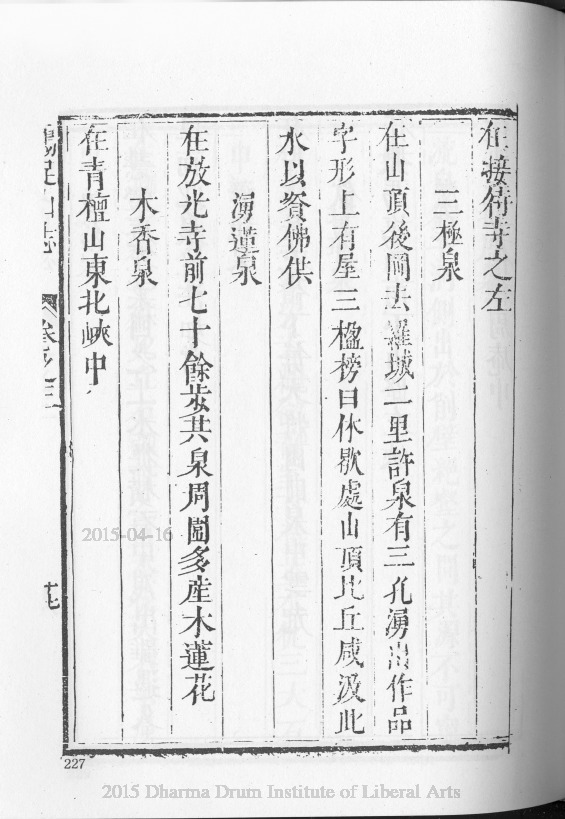 在接待寺之左
三極泉
在山頂後岡去羅城二里許泉有三孔湧出作品
字形上有屋三楹榜曰休歇處山頂比丘咸汲此
水以資佛供
湧蓮泉
在放光寺前七十餘步共泉周圍多產木蓮花
木香泉
在青檀山東北峽中
雞足山志
卷之三
227
2015-04-16
2015 Dharma Drum Institute of Liberal Arts